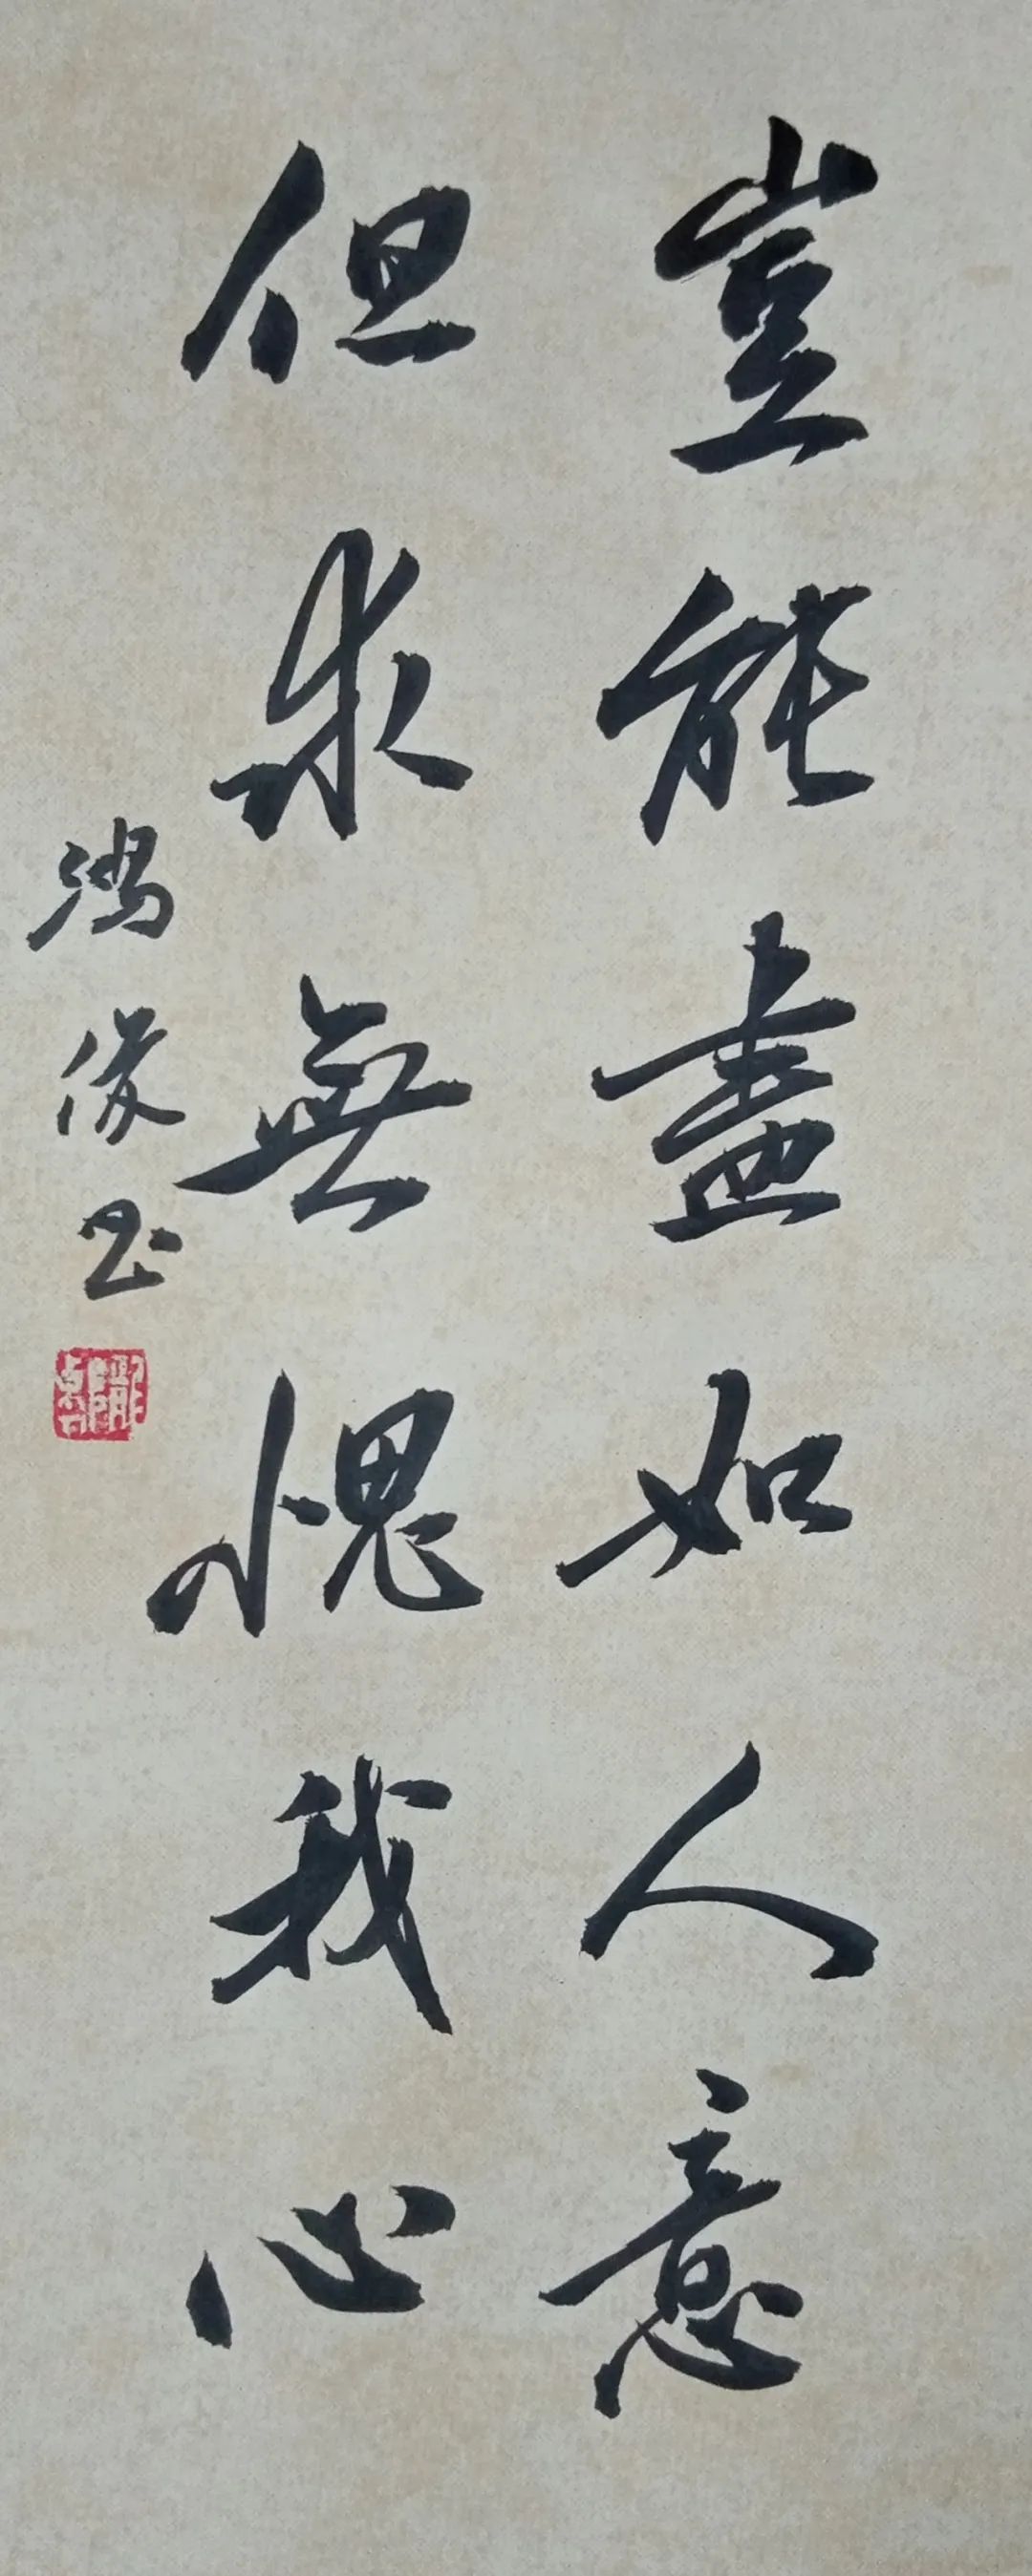 豈能盡如人意
但求無愧我心
鴻俊书